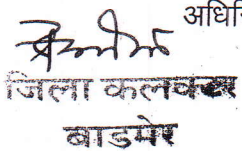 अधि
जिला कलक्टर
बाडमेर